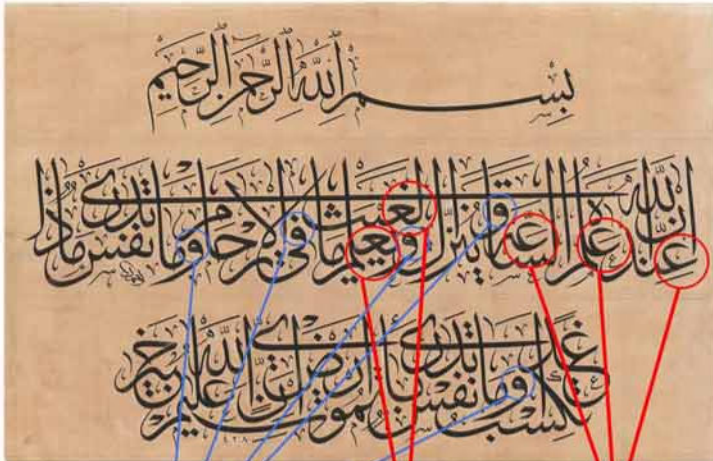 بِسْمِ اللَّهِ الرَّحْمَنِ الرَّحِيمِ
إِنَّ اللَّهَ عِنْدَهُ عِلْمُ السَّاعَةِ وَيُنَزِّلُ الْغَيْثَ وَيَعْلَمُ مَا فِي الْأَرْحَامِ وَمَا تَدْرِي نَفْسٌ مَاذَا
تَكْسِبُ غَدًا وَمَا تَدْرِي نَفْسٌ بِأَيِّ أَرْضٍ تَمُوتُ إِنَّ اللَّهَ عَلِيمٌ خَبِيرٌ